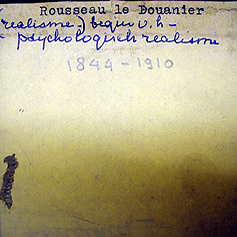 Rousseau le Douanier
(realisme.) begin v. h-
psychologisch realisme
1844-1910